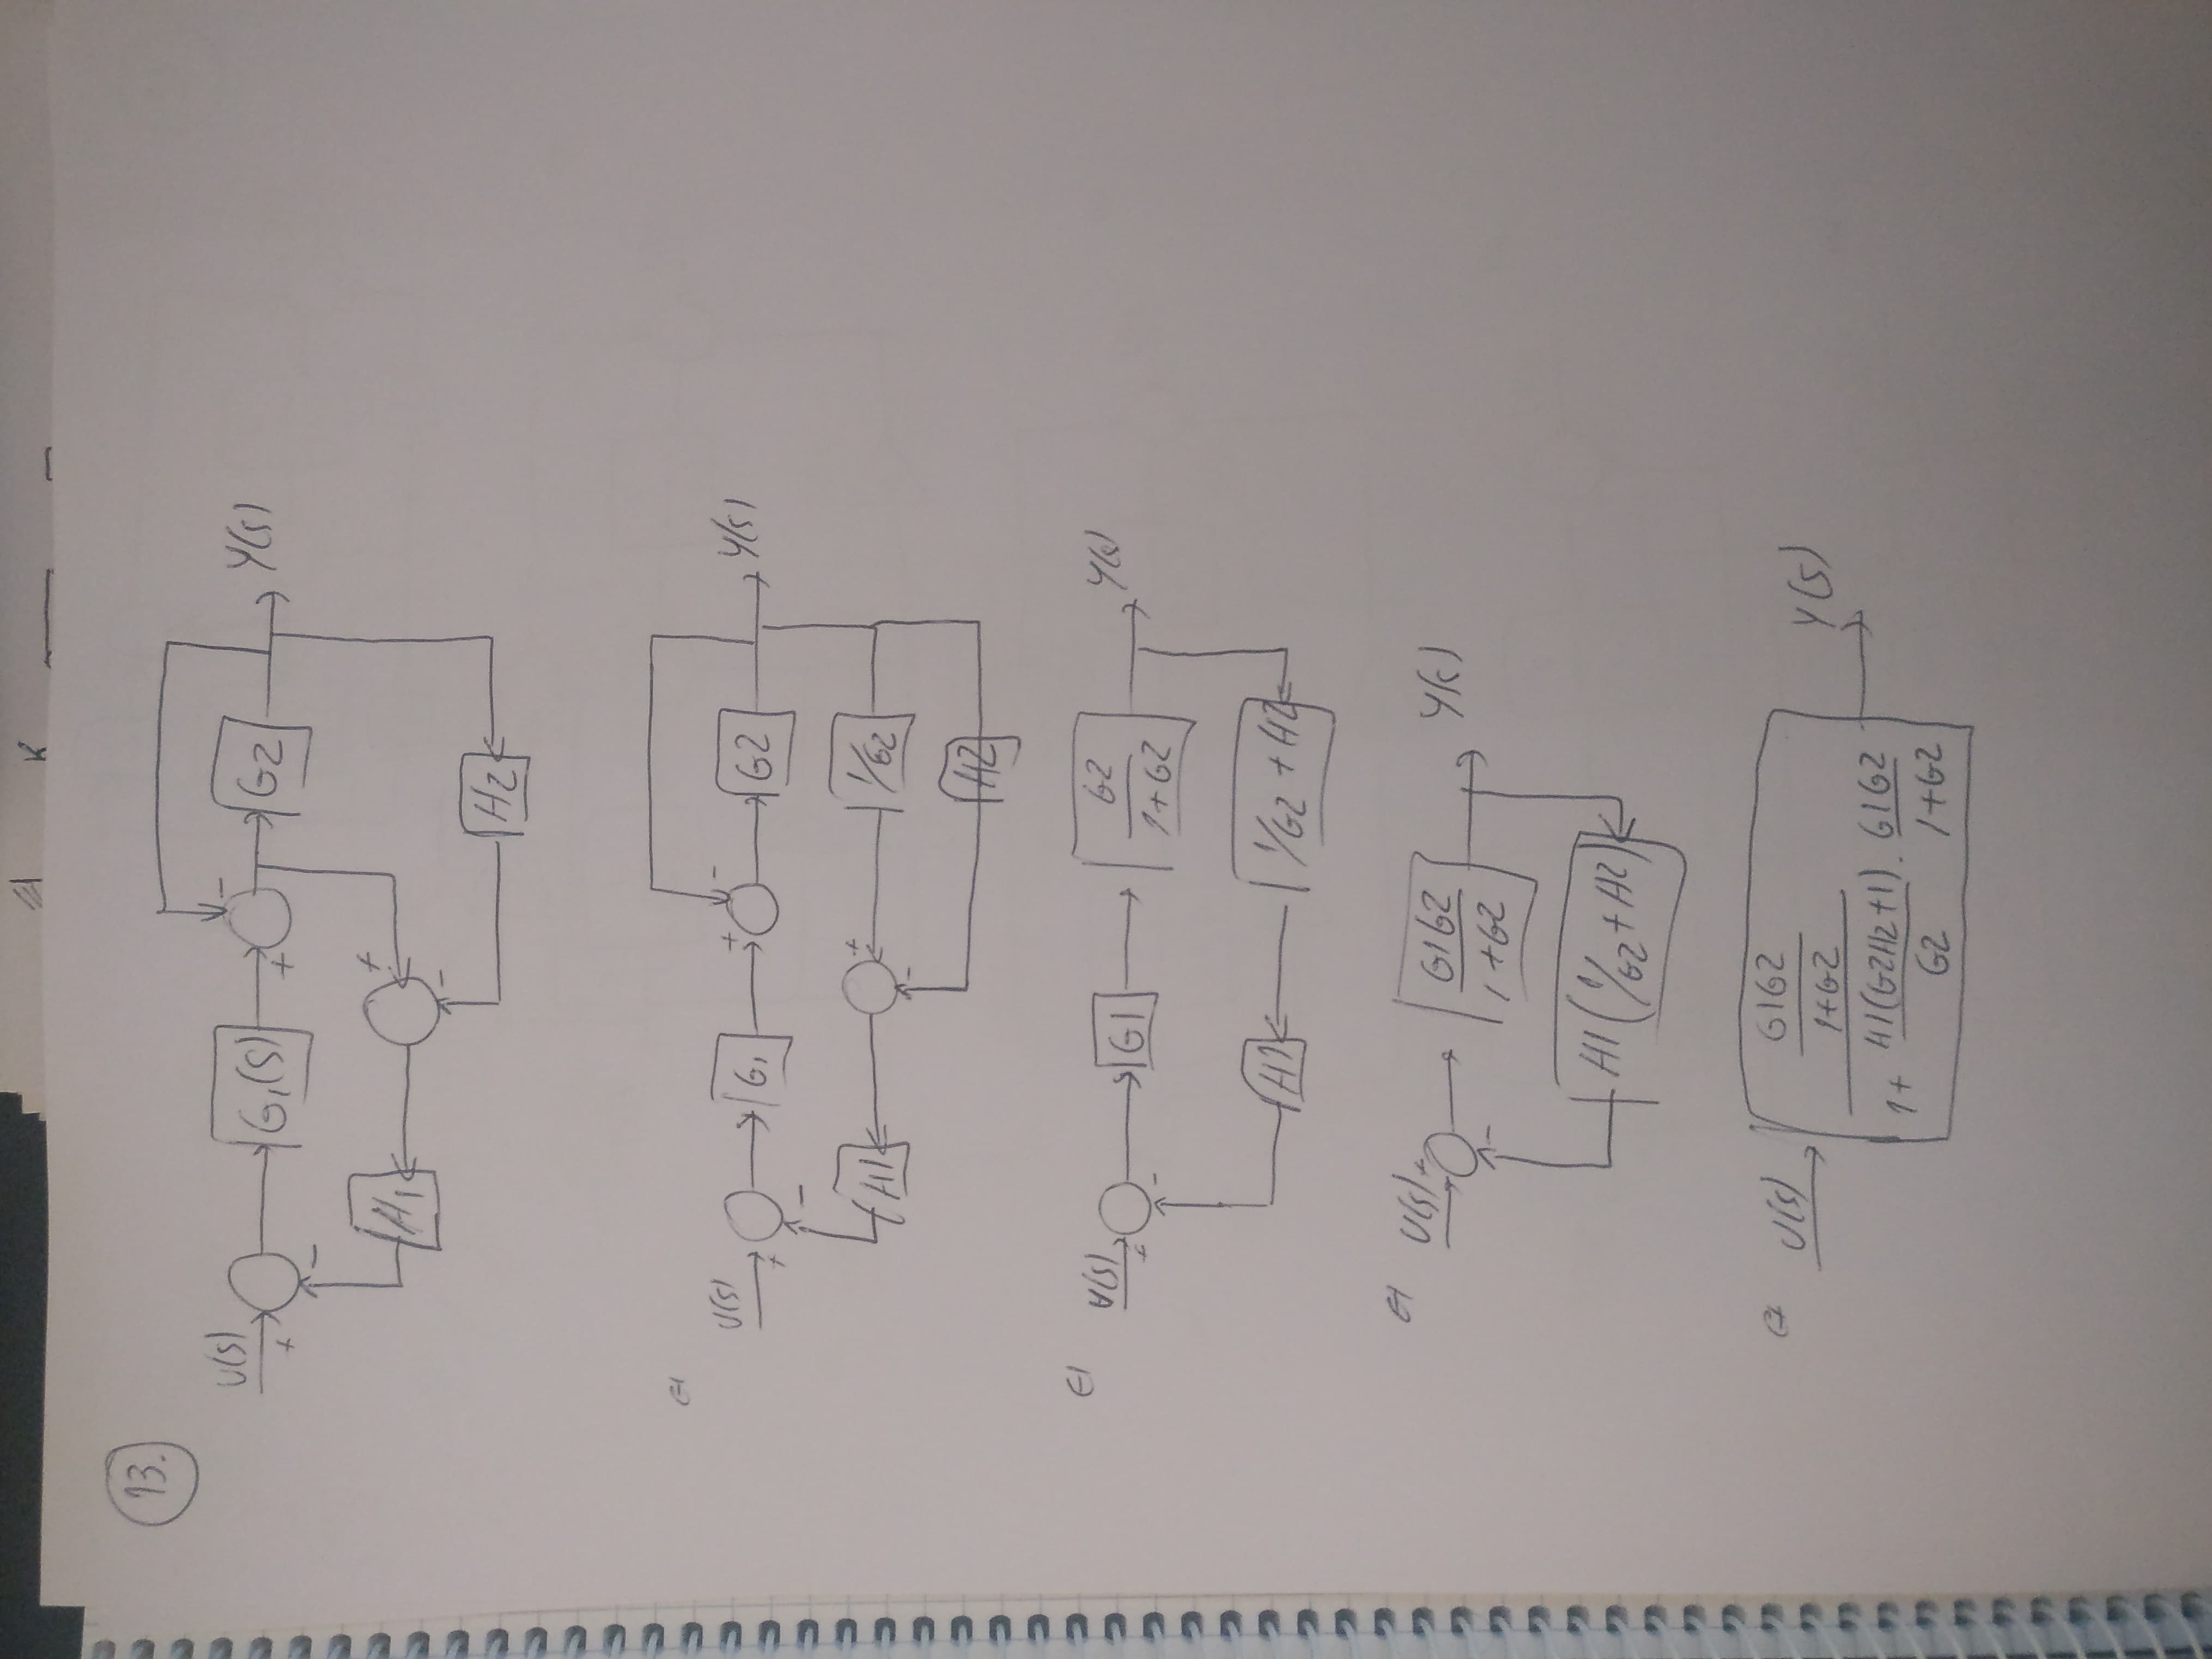 K
13.
U(s) + - G1(S) + - G2 Y(s)
H1 + -
H2
U(s) + - G1 + - G2 Y(s)
H1 + - 1/G2
H2
U(s) + - G1 G2/1+G2 Y(s)
H1 1/G2 + H2
U(s) + - G1G2/1+G2 Y(s)
H1(1/G2 + H2)
G1G2
U(s) 1+G2 Y(s)
1+ H1(G2H2+1) . G1G2
G2 1+G2